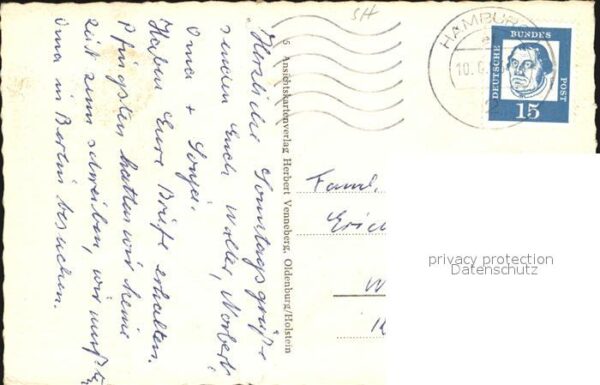 Herzliche Sonntagsgrüße
senden Euch Walter, Norbert
Oma + Sonja.
Haben Eure Briefe erhalten.
Pfingsten hatten wir keine
Zeit zum schreiben, wir mußten
Oma in Berlin besuchen.
5 Ansichtskartenverlag Herbert Venneberg, Oldenburg/Holstein
SH
HAMBURG
10. 6.
DEUTSCHE BUNDES POST
15
Faml.
Erich
W
privacy protection
Datenschutz